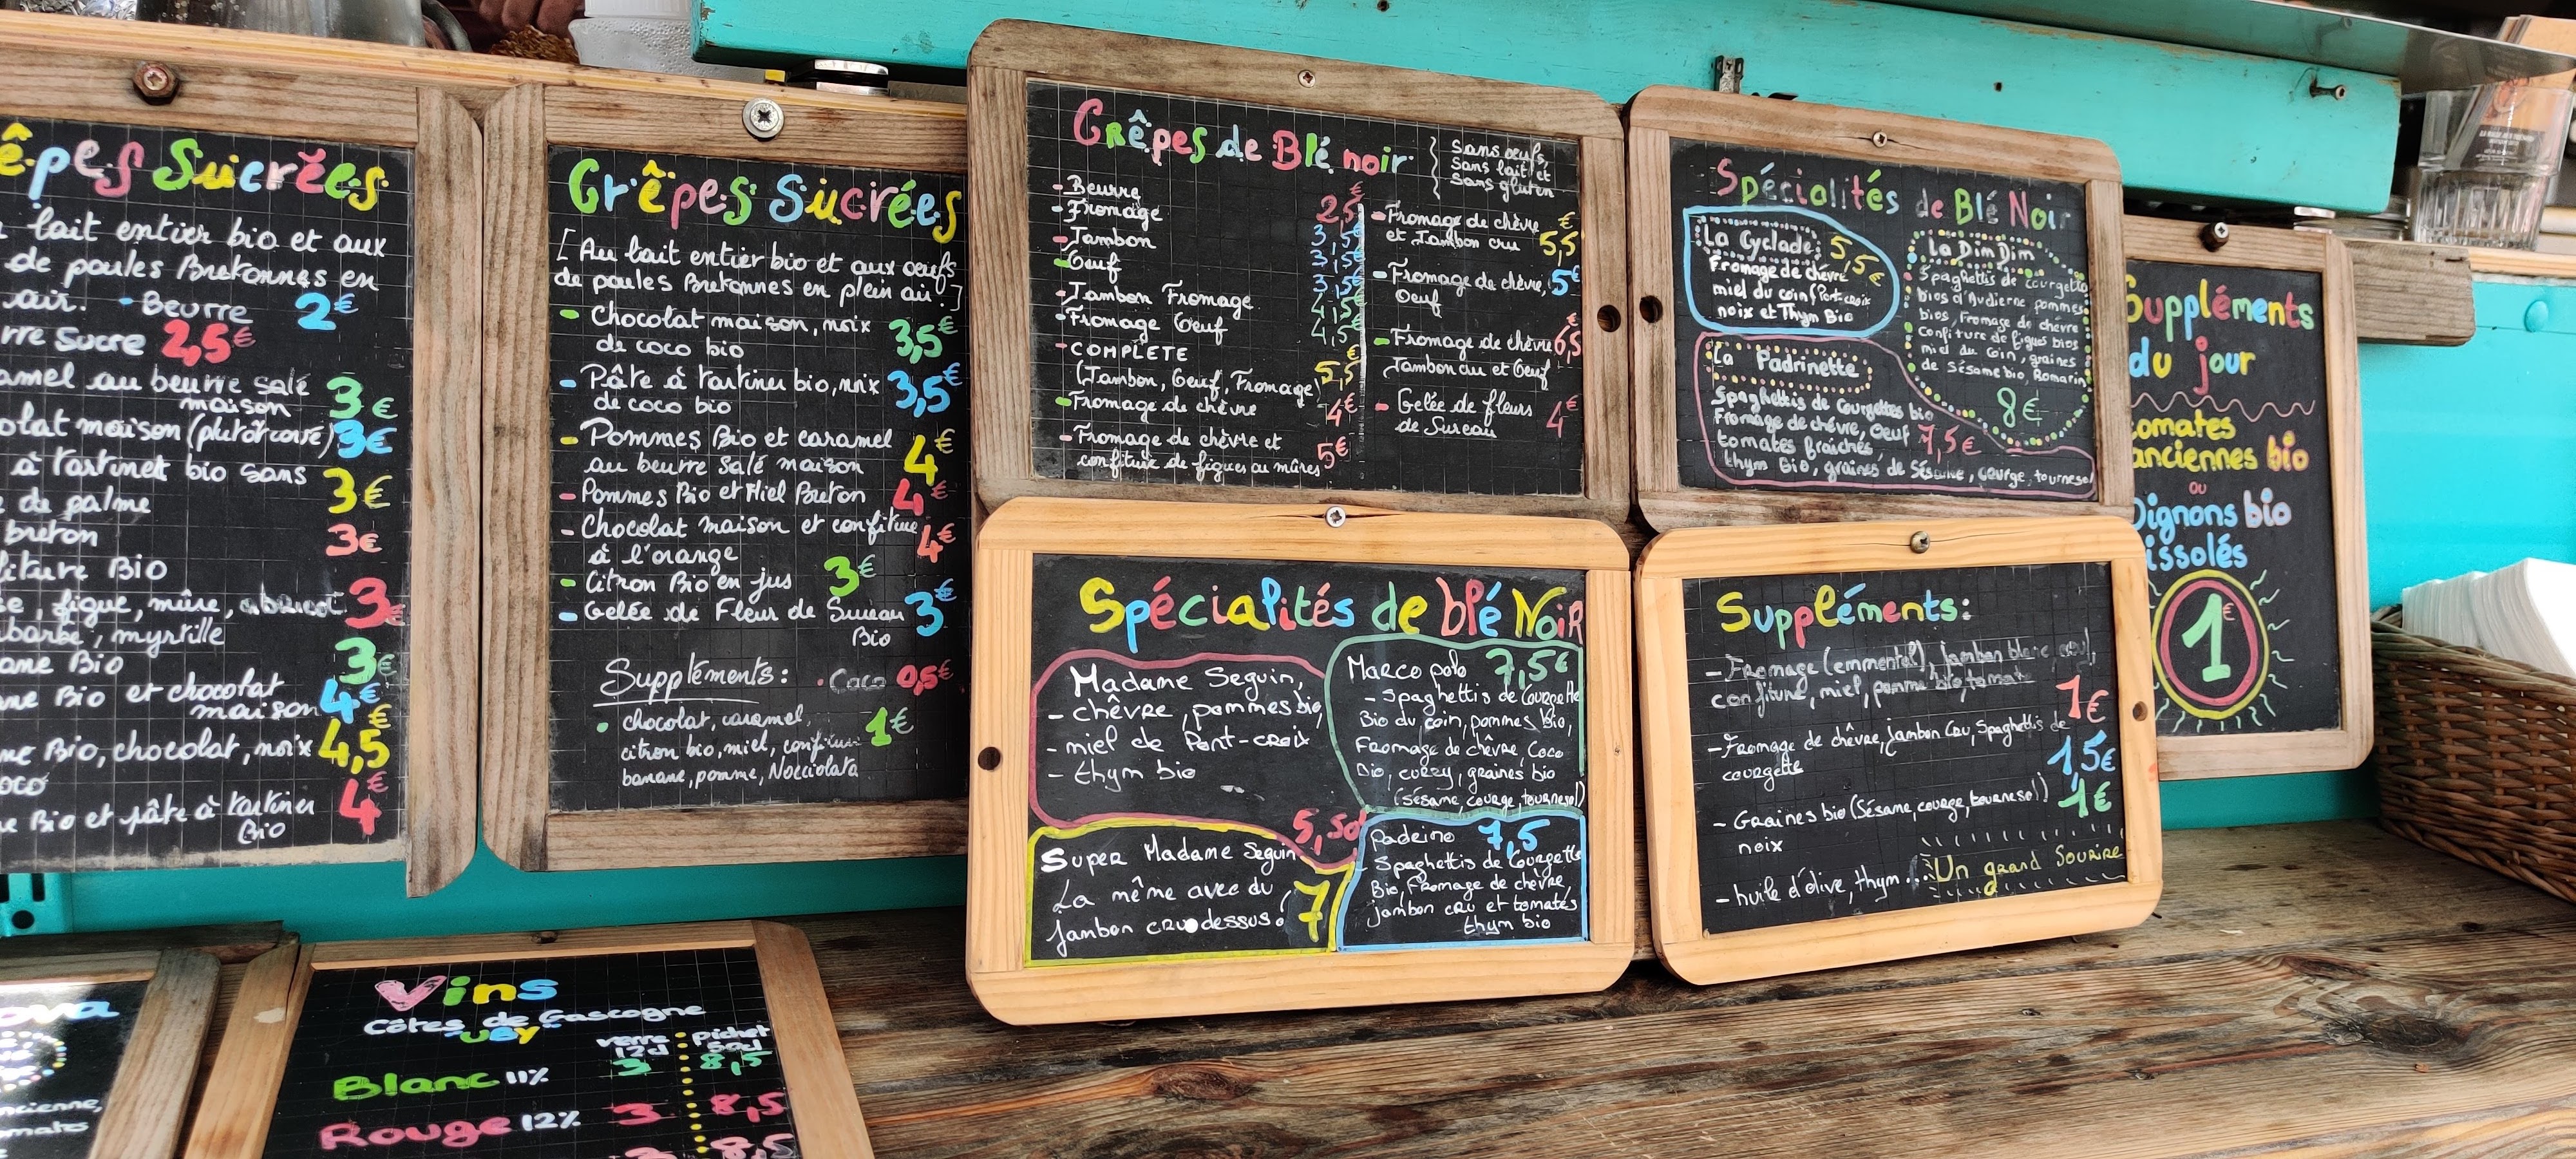 êpes Sucrées
lait entier bio et aux
de poules Bretonnes en
air. - Beurre 2€
rre Sucre 2,5€
amel au beurre salé 3€
maison
olat maison (plutôt corsé) 3€
à tartiner bio sans
de palme 3€
breton 3€
fiture Bio
, figue, mûre, abricot 3€
barbe, myrtille
ane Bio 3€
ne Bio et chocolat
maison 4€
ne Bio, chocolat, noix 4,5€
oco
e Bio et pâte à tartiner 4€
Bio
Crêpes Sucrées
[Au lait entier bio et aux oeufs
de poules Bretonnes en plein air.]
- Chocolat maison, noix 3,5€
de coco bio
- Pâte à tartiner bio, noix 3,5€
de coco bio
- Pommes Bio et caramel 4€
au beurre salé maison
- Pommes Bio et Miel Breton 4€
- Chocolat maison et confiture 4€
à l'orange
- Citron Bio en jus 3€
- Gelée de Fleur de Sureau 3€
Bio
Suppléments: . Coco 0,5€
• chocolat, caramel,
citron bio, miel, confiture 1€
banane, pomme, Nocciolata
Vins
Côtes de Gascogne
UBY
verre pichet
12cl 50cl
Blanc 11% 3 8,5
Rouge 12% 3 8,5
3 8,5
ova
ncienne,
omates
Crêpes de Blé noir } Sans oeufs,
Sans lait et
Sans gluten
- Beurre 2,5€
- Fromage 3,5€
- Jambon 3,5€
- Oeuf 3,5€
- Jambon Fromage 4,5€
- Fromage Oeuf 4,5€
- COMPLETE
(Jambon, Oeuf, Fromage) 5,5€
- Fromage de chèvre 4€
- Fromage de chèvre et
confiture de figues ou mûres 5€
- Fromage de chèvre
et Jambon cru 5,5€
- Fromage de chèvre, 5€
Oeuf
- Fromage de chèvre 6,5€
Jambon cru et Oeuf
- Gelée de fleurs
de Sureau 4€
Spécialités de Blé Noir
La Cyclade: 5,5€
Fromage de chèvre
miel du coin (Pont-croix
noix et Thym Bio
La Dim Dim
Spaghettis de courgette
bios d'Audierne pommes
bios, Fromage de chèvre
confiture de figues bios
miel du Coin, graines
de Sésame bio, Romarin
8€
La Padrinette
Spaghettis de Courgettes bio
Fromage de chèvre, Oeuf 7,5€
tomates fraîches,
thym Bio, graines de Sésame, courge, tournesol
Spécialités de blé NOIR
Madame Seguin,
- chèvre, pommes bio,
- miel de Pont-croix
- thym bio
5,50
Marco polo 7,5€
- Spaghettis de Courgette
Bio du coin, pommes Bio,
Fromage de chèvre, Coco
Bio, curry, graines bio
(sésame, courge, tournesol)
Super Madame Seguin
La même avec du
jambon cru dessus! 7
Padrino 7,5
- Spaghettis de Courgette
Bio, Fromage de chèvre,
jambon cru et tomates
thym bio
Suppléments:
- Fromage (emmental), Jambon blanc, oeuf,
confiture, miel, pomme bio, tomate 1€
- Fromage de chèvre, jambon Cru, Spaghettis de
courgette 1,5€
- Graines bio (Sésame, courge, tournesol) 1€
noix
- huile d'olive, thym ... Un grand Sourire
Suppléments
du jour
tomates
anciennes bio
ou
Oignons bio
rissolés
1€